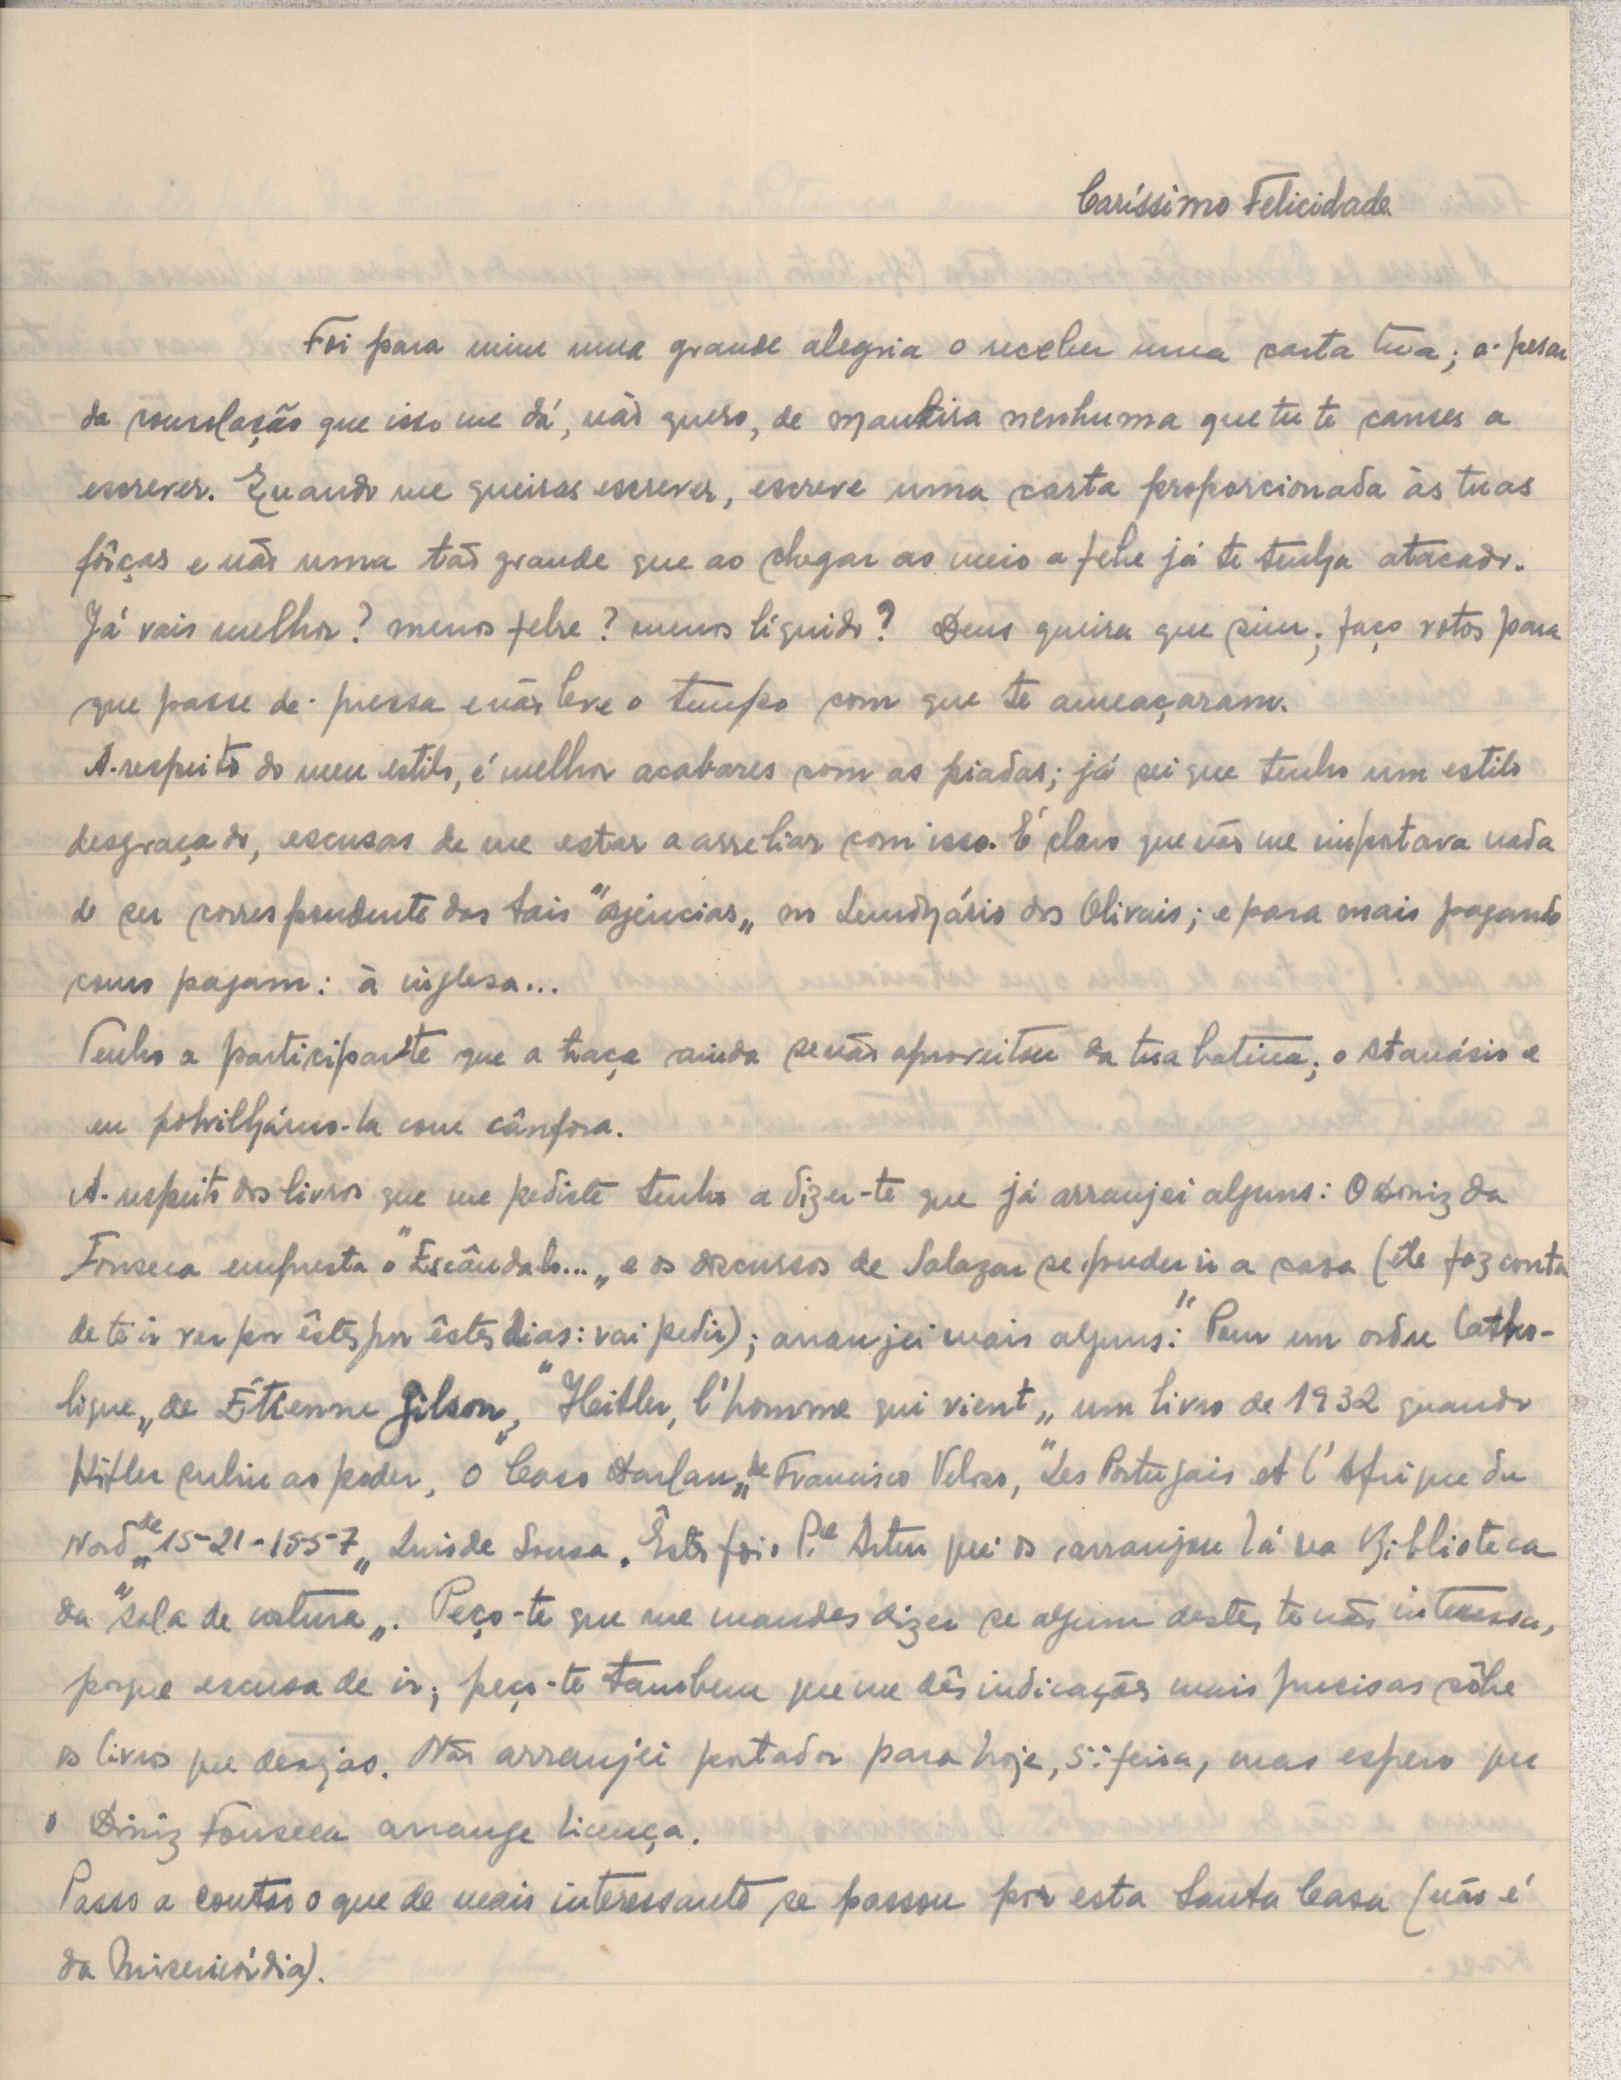 Caríssimo Felicidade
Foi para mim uma grande alegria o receber uma carta tua; a-pesar
da consolação que isso me dá, não quero, de maneira nenhuma que tu te canses a
escrever. Quando me queiras escrever, escreve uma carta proporcionada às tuas
fôrças e não uma tão grande que ao chegar ao meio a febre já te tenha atacado.
Já vais melhor? menos febre? menos líquido? Deus queira que sim; faço votos para
que passe de-pressa e não leve o tempo com que te ameaçaram.
A-respeito do meu estilo, é melhor acabares com as piadas; já sei que tenho um estilo
desgraçado, escusas de me estar a arreliar com isso. É claro que não me importava nada
de ser correspondente das tais "agências„ no Seminário dos Olivais; e para mais pagando
como pagam: à inglesa...
Tenho a participar-te que a traça ainda se não aproveitou da tua batina; o Atanásio e
eu polvilhámo-la com cânfora.
A-respeito dos livros que me pediste tenho a dizer-te que já arranjei alguns: O Diniz da
Fonseca empresta o "Escândalo...„ e os discursos de Salazar se puder ir a casa (êle faz conta
de te ir ver por êstes por êstes dias: vai pedir); arranjei mais alguns: "Pour un ordre Catho-
lique„ de Étienne Gilson, "Heitler, l'homme qui vient„ um livro de 1932 quando
Hitler subiu ao poder, o "Caso Darlan„ de Francisco Veloso, "Les Portugais et l'Afrique du
Nord„ de 15-21-1557„ Luis de Sousa. Êstes foi o P.e Artur que os arranjou lá na Biblioteca
da "sala de costura„. Peço-te que me mandes dizer se algum destes te não interessa,
porque escusa de ir; peço-te tambem que me dês indicações mais precisas sôbre
os livros que desejas. Não arranjei portador para hoje, 5.ª feira, mas espero que
o Diniz Fonseca arrange licença.
Passo a contar o que de mais interessante se passou por esta Santa Casa (não é
da Misericórdia).